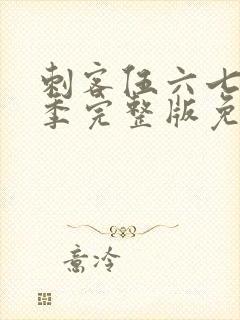 刺客伍六七
季完整版免
意冷